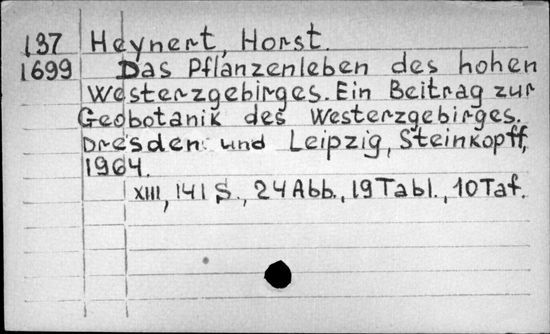 137 Heynert, Horst.
1699 Das Pflanzenleben des hohen
Westerzgebirges. Ein Beitrag zur
Geobotanik des Westerzgebirges.
Dresden und Leipzig, Steinkopff,
1964.
XIII, 141 S., 24 Abb., 19 Tabl., 10 Taf.